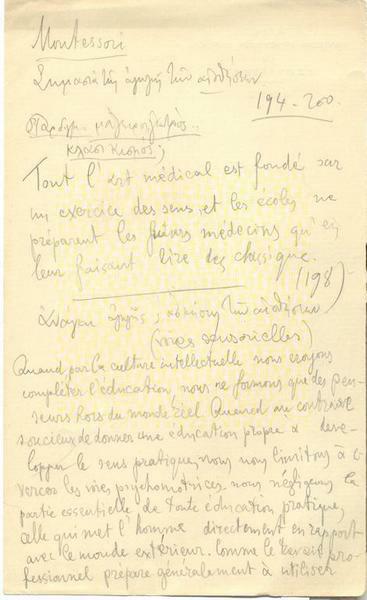 Montessori
Σημασία της αγωγής των αισθήσεων
194-200.
Tout l'art médical est fondé sur
un exercice des sens, et les écoles ne
préparent les futurs médecins qu'en
leur faisant lire des classique.
(198)
Ανάγκη αγωγής των αισθήσεων
(voies sensorielles)
Quand par la culture intellectuelle nous croyons
compléter l'éducation, nous ne formons que des pen-
seurs hors du monde réel. Quand au contraire
soucieux de donner une éducation propre à deve-
lopper le sens pratique, nous nous limitons à
exercer les voies psychomotrices, nous négligeons la
partie essentielle de toute éducation pratique,
celle qui met l'homme directement en rapport
avec le monde extérieur. Comme le travail pro-
fessionnel prépare généralement à utiliser